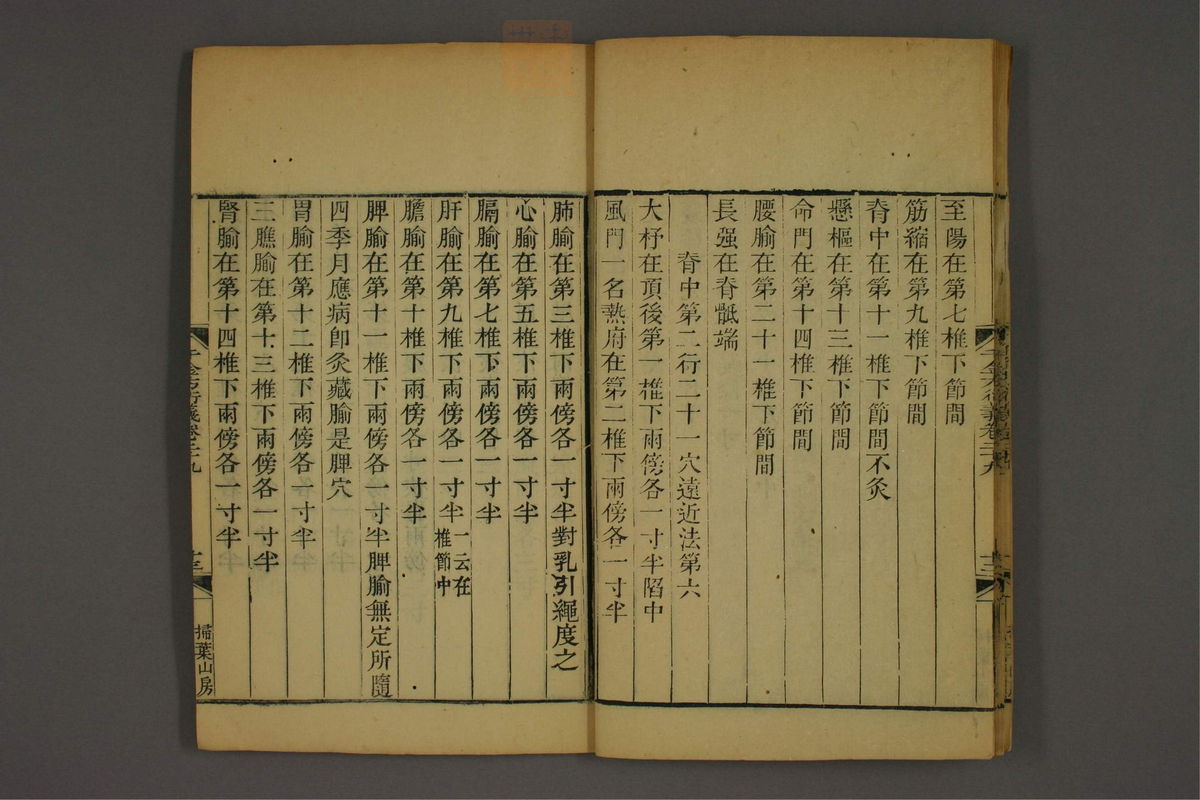 至陽在第七椎下節間
筋縮在第九椎下節間
脊中在第十一椎下節間不灸
懸樞在第十三椎下節間
命門在第十四椎下節間
腰腧在第二十一椎下節間
長强在脊骶端
脊中第二行二十一穴遠近法第六
大杼在項後第一椎下兩傍各一寸半陷中
風門一名熱府在第二椎下兩傍各一寸半
肺腧在第三椎下兩傍各一寸半對乳引繩度之
心腧在第五椎下兩傍各一寸半
膈腧在第七椎下兩傍各一寸半
肝腧在第九椎下兩傍各一寸半一云在椎節中
膽腧在第十椎下兩傍各一寸半
脾腧在第十一椎下兩傍各一寸半脾腧無定所隨
四季月應病卽灸藏腧是脾穴
胃腧在第十二椎下兩傍各一寸半
三膲腧在第十三椎下兩傍各一寸半
腎腧在第十四椎下兩傍各一寸半
千金方衍義卷二十九
十三
掃葉山房